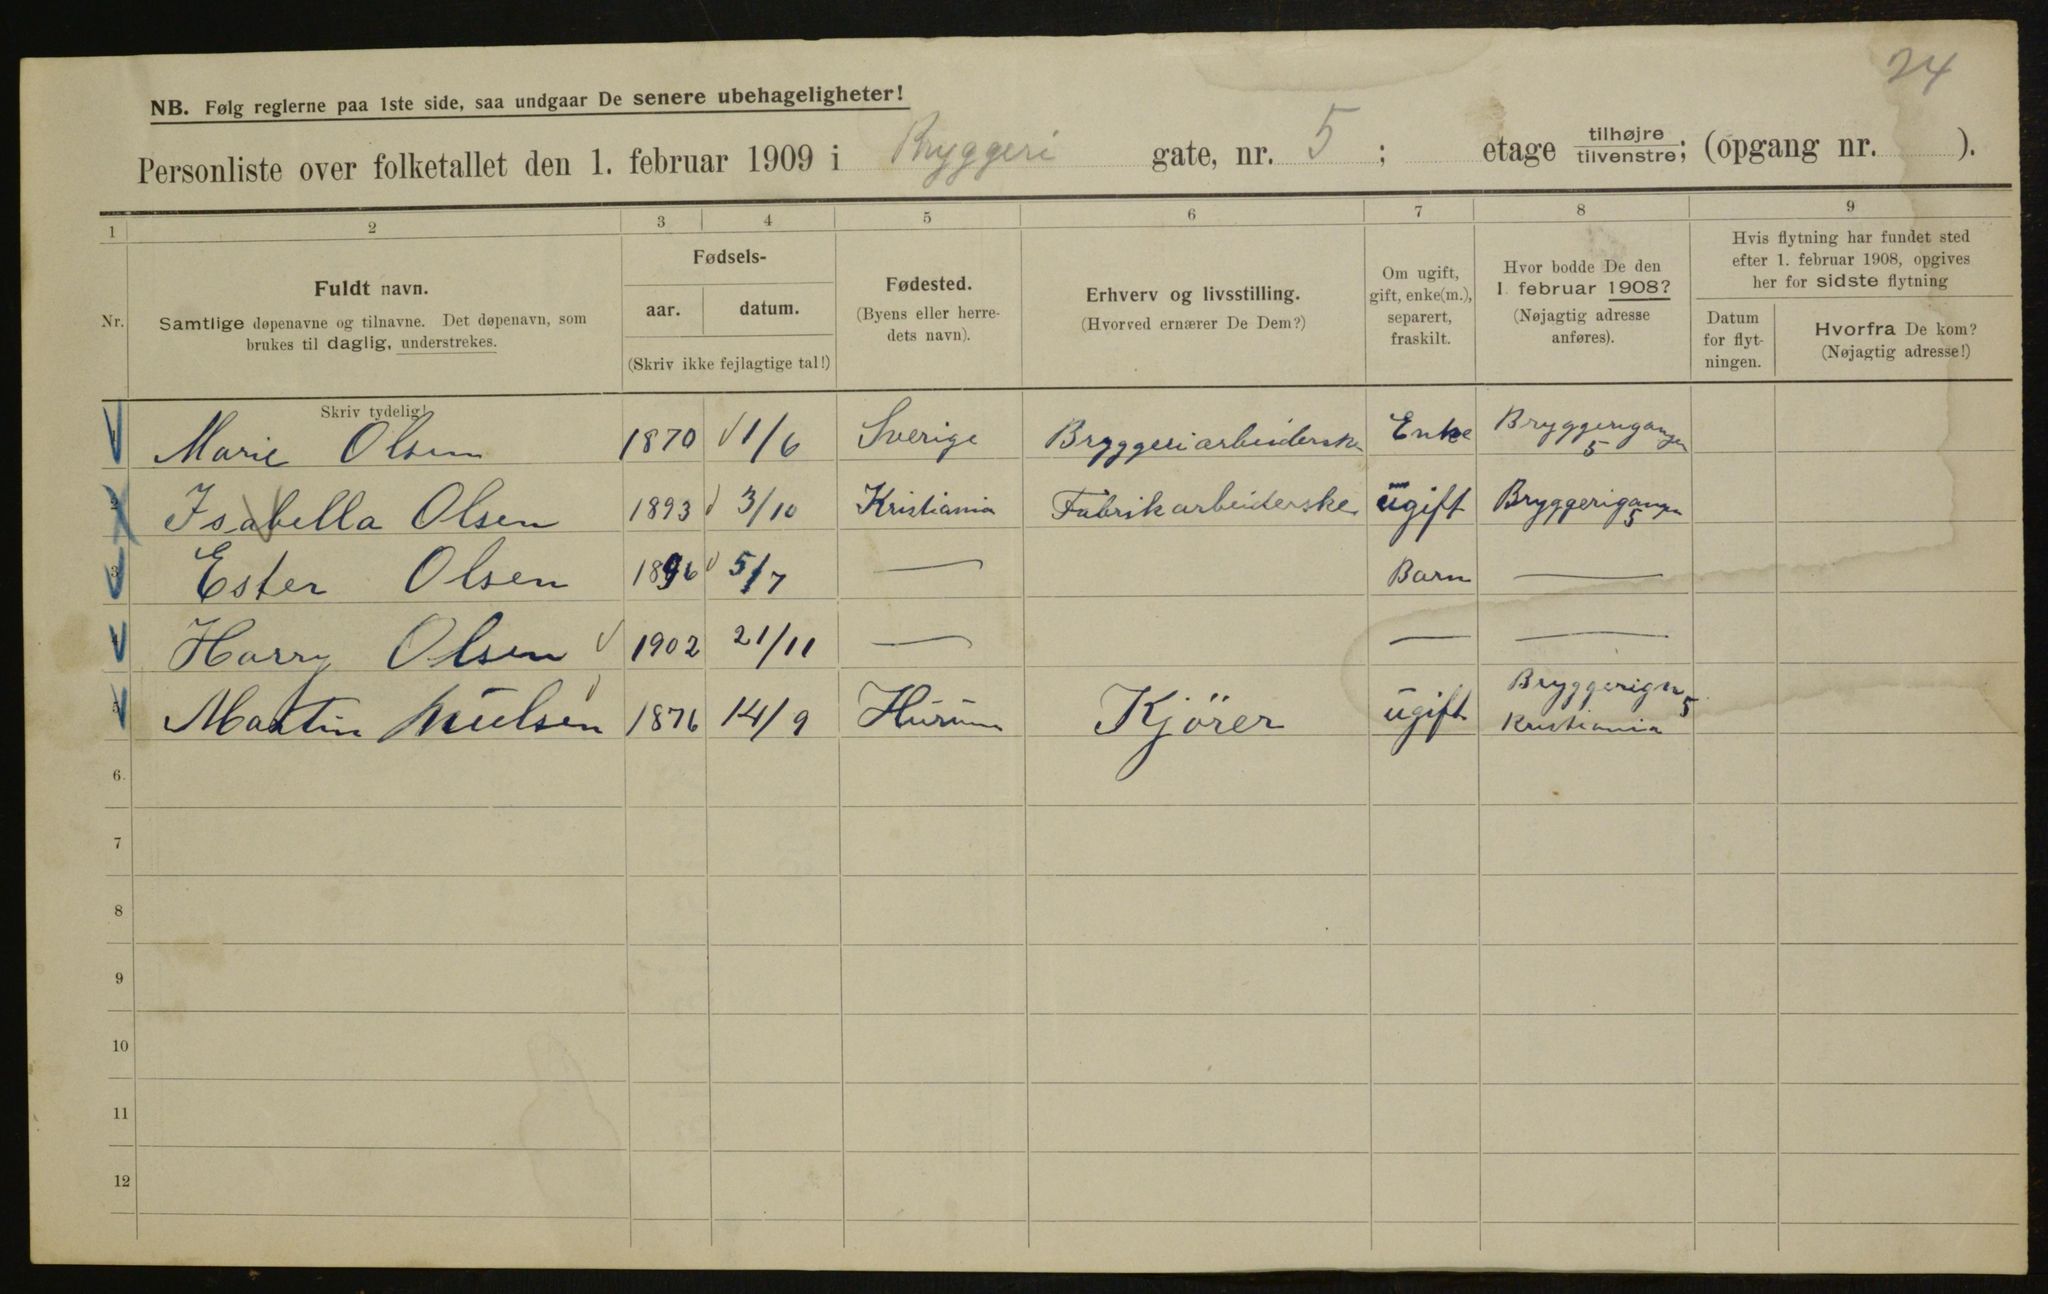 24
NB. Følg reglerne paa 1ste side, saa undgaar De senere ubehageligheter!
Personliste over folketallet den 1. februar 1909 i Bryggeri gate, nr. 5 ; etage tilhøjre tilvenstre; (opgang nr. ).
1 2 3 4 5 6 7 8 9
Nr.
Fuldt navn.
Samtlige døpenavne og tilnavne. Det døpenavn, som
brukes til daglig, understrekes.
Fødsels-
aar. datum.
(Skriv ikke fejlagtige tal!)
Fødested.
(Byens eller herre-
dets navn).
Erhverv og livsstilling.
(Hvorved ernærer De Dem?)
Om ugift,
gift, enke(m.),
separert,
fraskilt.
Hvor bodde De den
1. februar 1908?
(Nøjagtig adresse
anføres).
Hvis flytning har fundet sted
efter 1. februar 1908, opgives
her for sidste flytning
Datum
for flyt-
ningen.
Hvorfra De kom?
(Nøjagtig adresse!)
Skriv tydelig!
1 Marie Olsen 1870 1/6 Sverige Bryggeriarbeiderske Enke Bryggerigangen 5
2 Isabella Olsen 1893 3/10 Kristiania Fabrikarbeiderske ugift Bryggerigangen 5
3 Ester Olsen 1896 5/7 — Barn —
4 Harry Olsen 1902 21/11 — — —
5 Martin Nielsen 1876 14/9 Hurum Kjörer ugift Bryggerign 5
Kristiania
6.
7
8
9
10
11
12